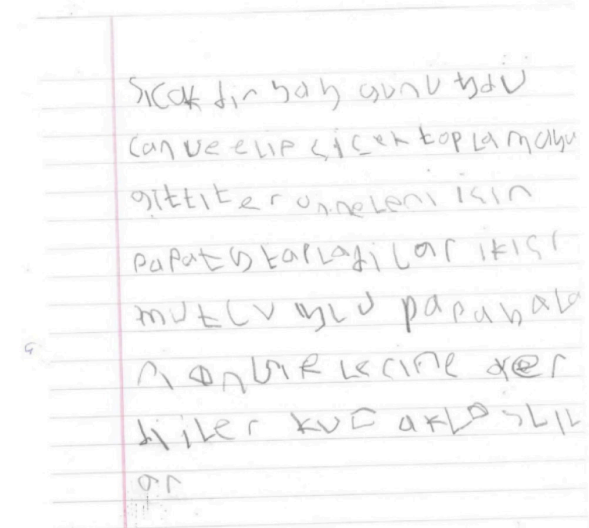 Sıcak dir bah gunu ydü
Can ve elip çiçek toplamayu
gittiter anneleni için
papaty toplafilar ikisi
mutlu papabala
lerine ver
diler kuc aklasLıL
ar